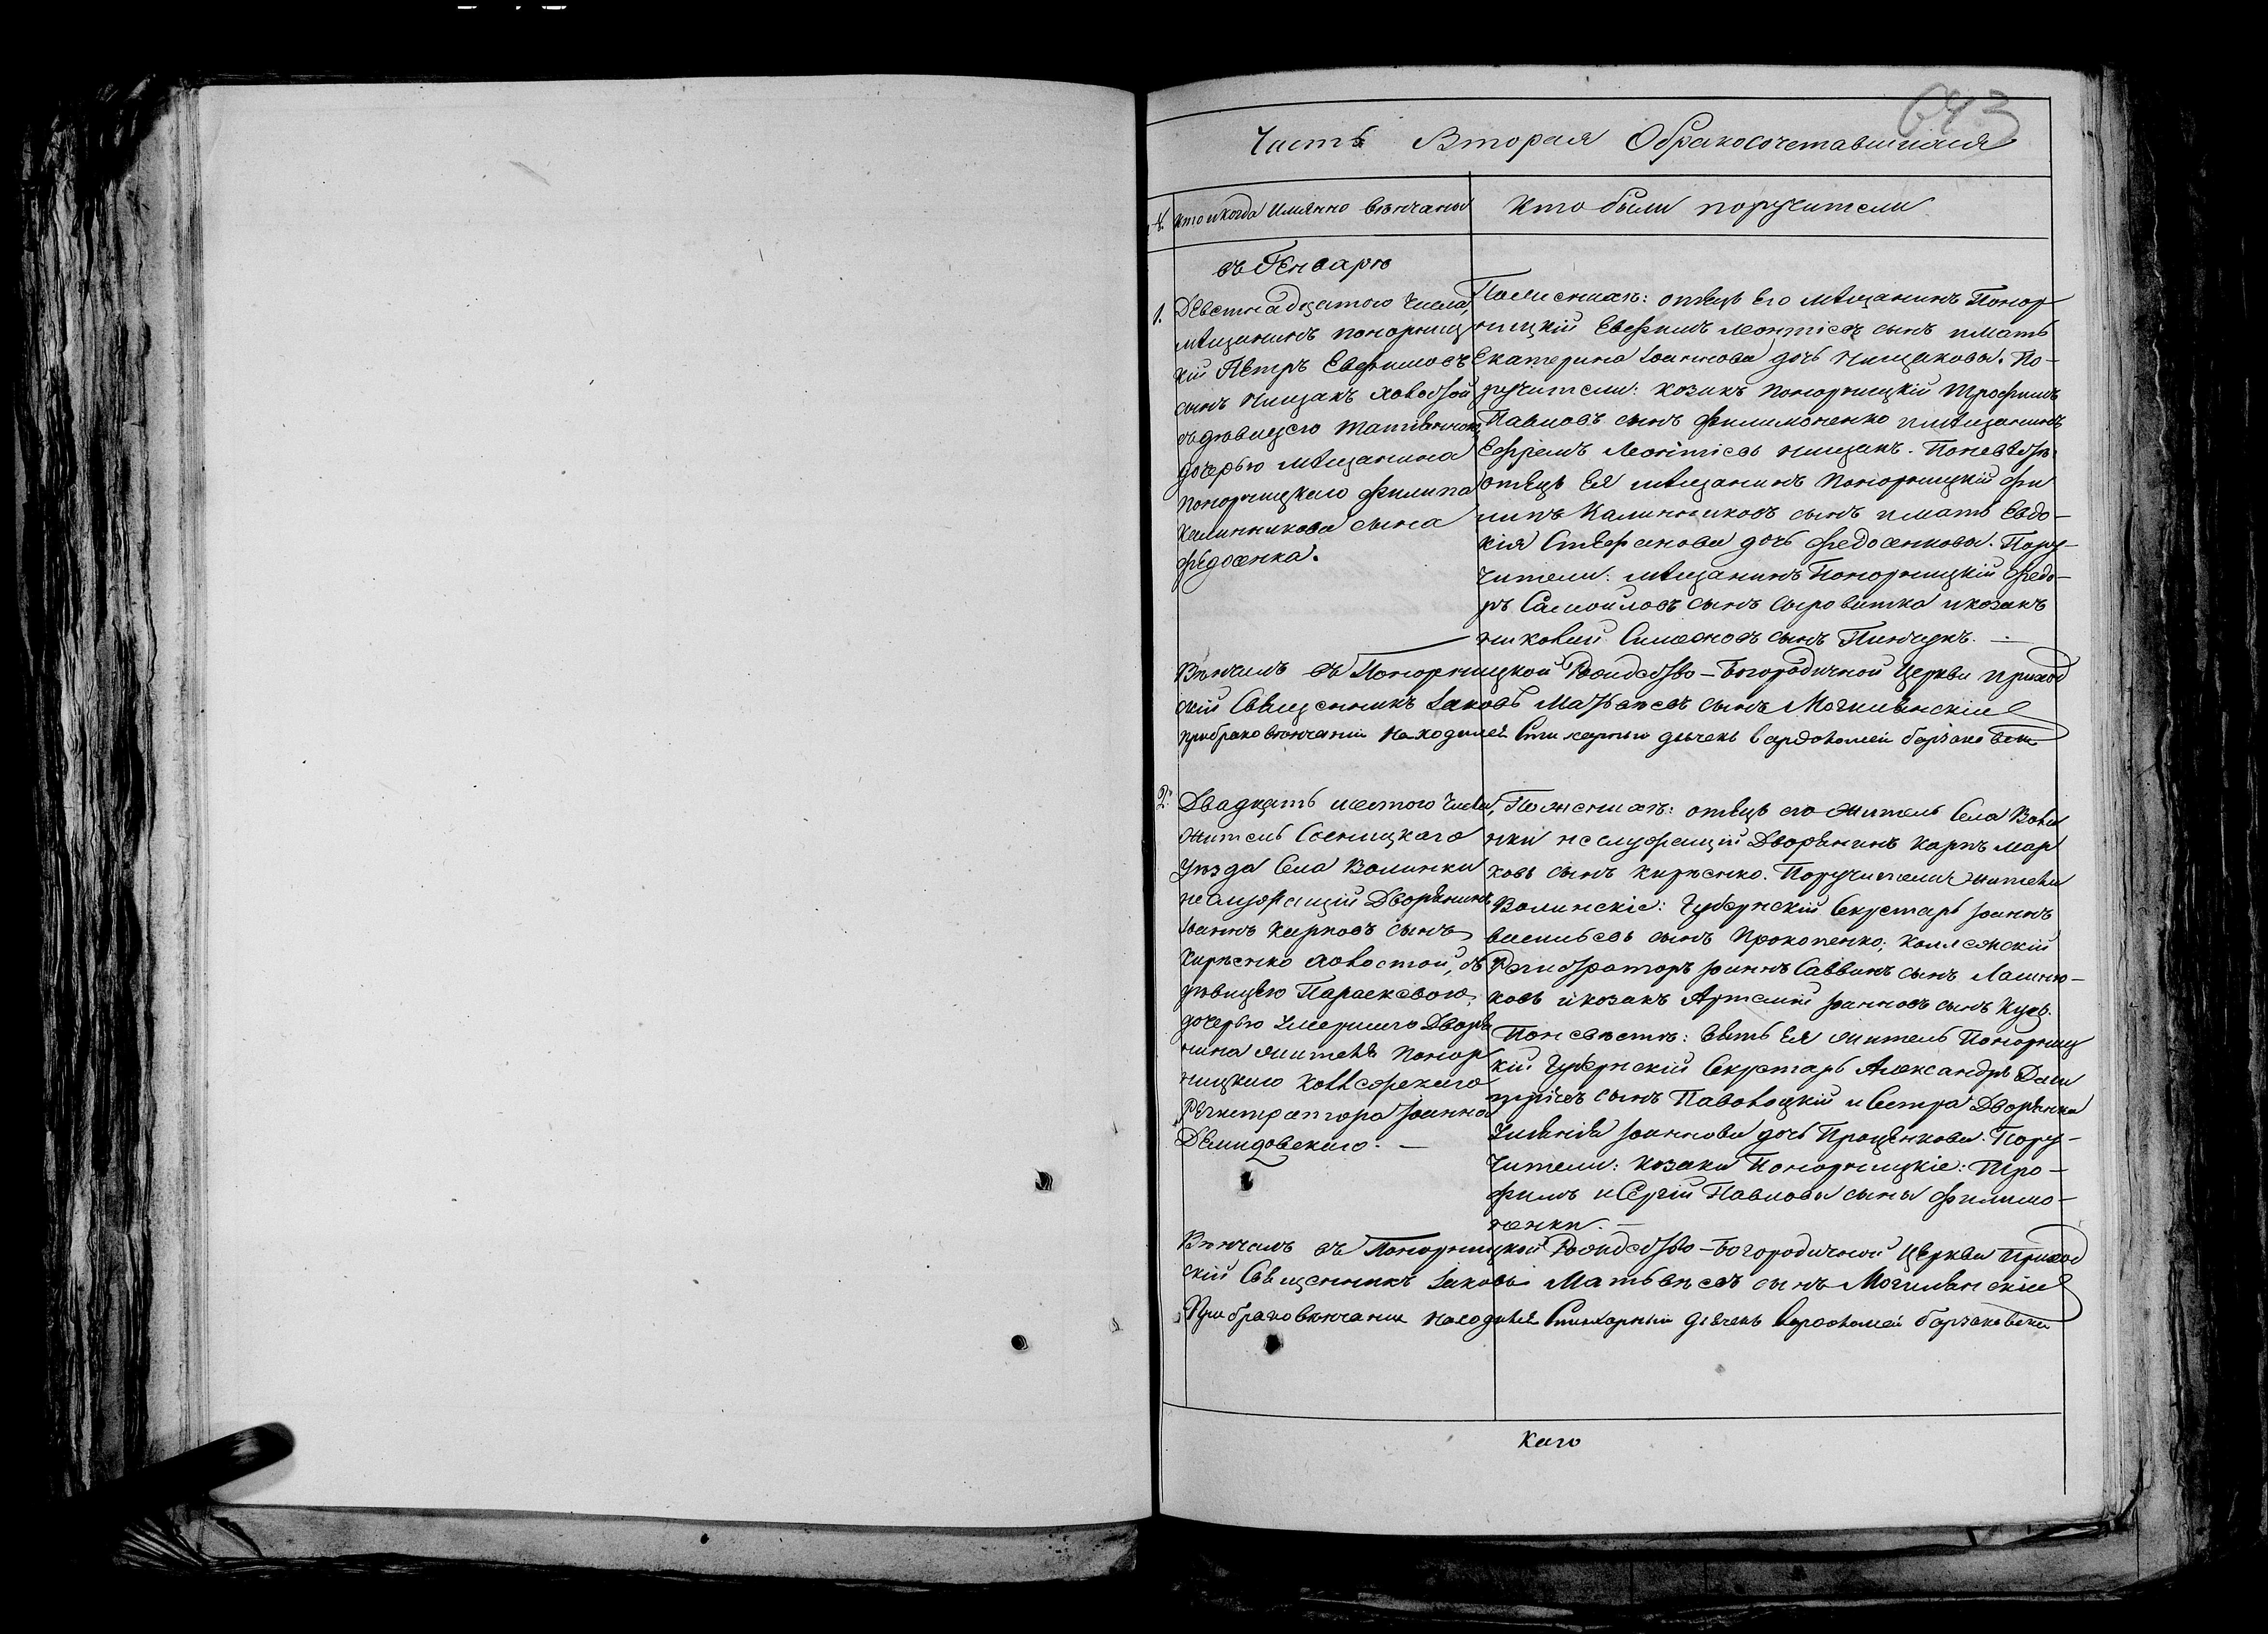 643
Часть Вторая Обракосочетавшихся
№ Кто и когда Имянно венчаны
Кто были поручители
въ Генварѣ
1. Девятнадцатого числа,
мещанинъ понорниц
кій Петръ Евфимовъ
сынъ Нищакъ холостой
съ девицею Татіянною
дочерью мещанина
Понорницкаго Филипа
Калинникова сына
Федосенка.
По женихѣ: отецъ его мещанинъ Понор
ницкій Евфимъ Леонтіевъ сынъ и мать
Екатерина Іоаннова дочь Нищакова. По-
ручители: козакъ Понорницкій Трофимъ
Павловъ сынъ Филимоненко и мещанинъ
Ефремъ Леонтіевъ нищакъ. По невѣстѣ:
отецъ Ея мещанинъ Понорницкій Фи
липъ Калинниковъ сынъ и мать Евдо-
кія Стефанова дочь Федосенкова. Пору-
чители: мещанинъ Понорницкій Федо-
ръ Самойловъ сынъ Сыроватка и козакъ
Николай Симеоновъ сынъ Пинчукъ.
Вѣнчалъ въ Понорницкой Рождество-Богородичной Церкви приход
скій Священникъ Іаковъ Матвѣевъ сынъ Могилянскій
при браковѣнчаніи находился Стихарный дьячекъ Варфоломей
2. Двадцать шестого числа,
житель Сосницкаго
уѣзда Села Волынки
не служащій Дворянинъ
Іоаннъ Карповъ сынъ
Киріенко холостой, съ
дѣвицею Параскевою,
дочерью умершего Дворя
нина жителя Понор
ницкаго Коллежскаго
Регистратора Іоанна
Демидовскаго.
По женихѣ: отецъ его житель Села Волы
нки не служащій Дворянинъ Карпъ Мар
ковъ сынъ Киріенко. Поручители жители
Волынскіе: Губернскій Секретарь Іоаннъ
Васильевъ сынъ Прокопенко; Коллежскій
Регистраторъ Іоаннъ Саввинъ сынъ
ковъ и козакъ Артемій Іоанновъ сынъ Куць.
По невѣстѣ: Зять Ея житель Понорниц
кій Губернскій Секретарь Александръ Дми
тріевъ сынъ Паволоцкій и Сестра Дворянка
Уліянія Іоаннова дочь Проценкова. Пору-
чители: козаки Понорницкіе: Тро-
фимъ и Сергій Павловы сыны Филимо-
ненки.
Вѣнчалъ въ Понорницкой Рождество-Богородичной Церкви приход
скій Священникъ Іаковъ Матвѣевъ сынъ Могилянскій
При браковѣнчаніи находился Стихарный дьячекъ Варфоломей
Каго